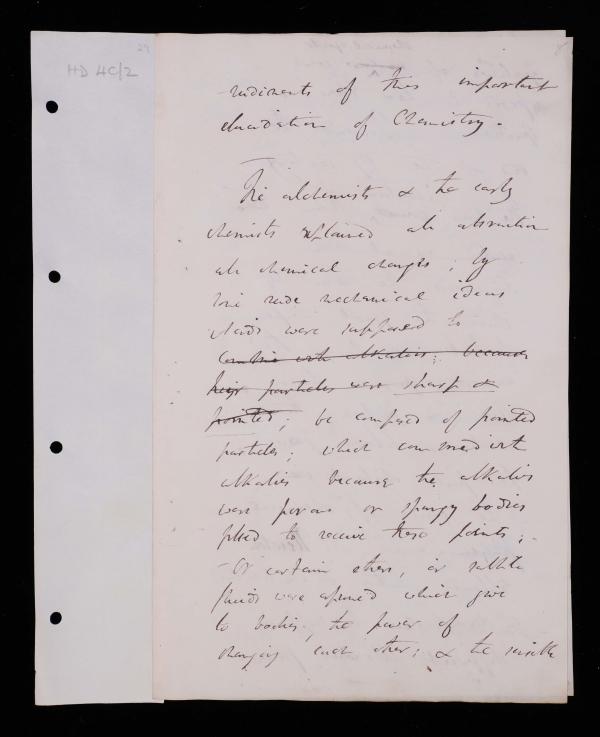 29
HD 4C/2
8
rudiments of this important
elucidation of Chemistry.
The alchemists & the early
chemists explained all attraction
all chemical changes; by
some rude mechanical ideas
Acids were supposed to
combine with alkalies; because
their particles were sharp &
pointed; be composed of pointed
particles; which combined with
alkalies because the alkalies
were porous or spongy bodies
fitted to receive these points;
Or certain ethers, or subtle
fluids were assumed which give
to bodies, the power of
changing each other; & the sensible